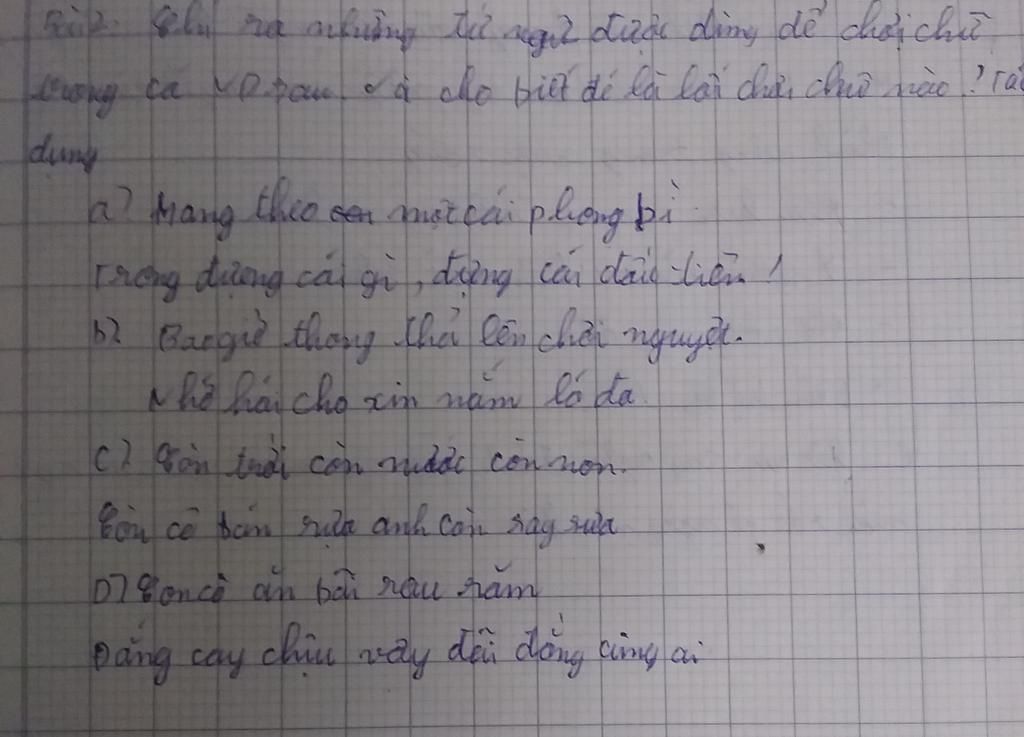 Bài 2. Chỉ ra những từ ngữ được dùng để chơi chữ
trong cá VD sau và cho biết đó là lối chơi chữ nào? Tác
dụng
a) Mang theo một cái phong bì
Trong đựng cái gì, đựng cái đầu tiên!
b) Bao giờ thong thả lên chơi nguyệt.
Nhờ hái cho xin nắm lá đa
c) Còn trời còn nước còn non.
Còn cô bán rượu anh còn say sưa
D) Con cò ăn bãi rau răm
Đắng cay chịu vậy đãi đằng cùng ai